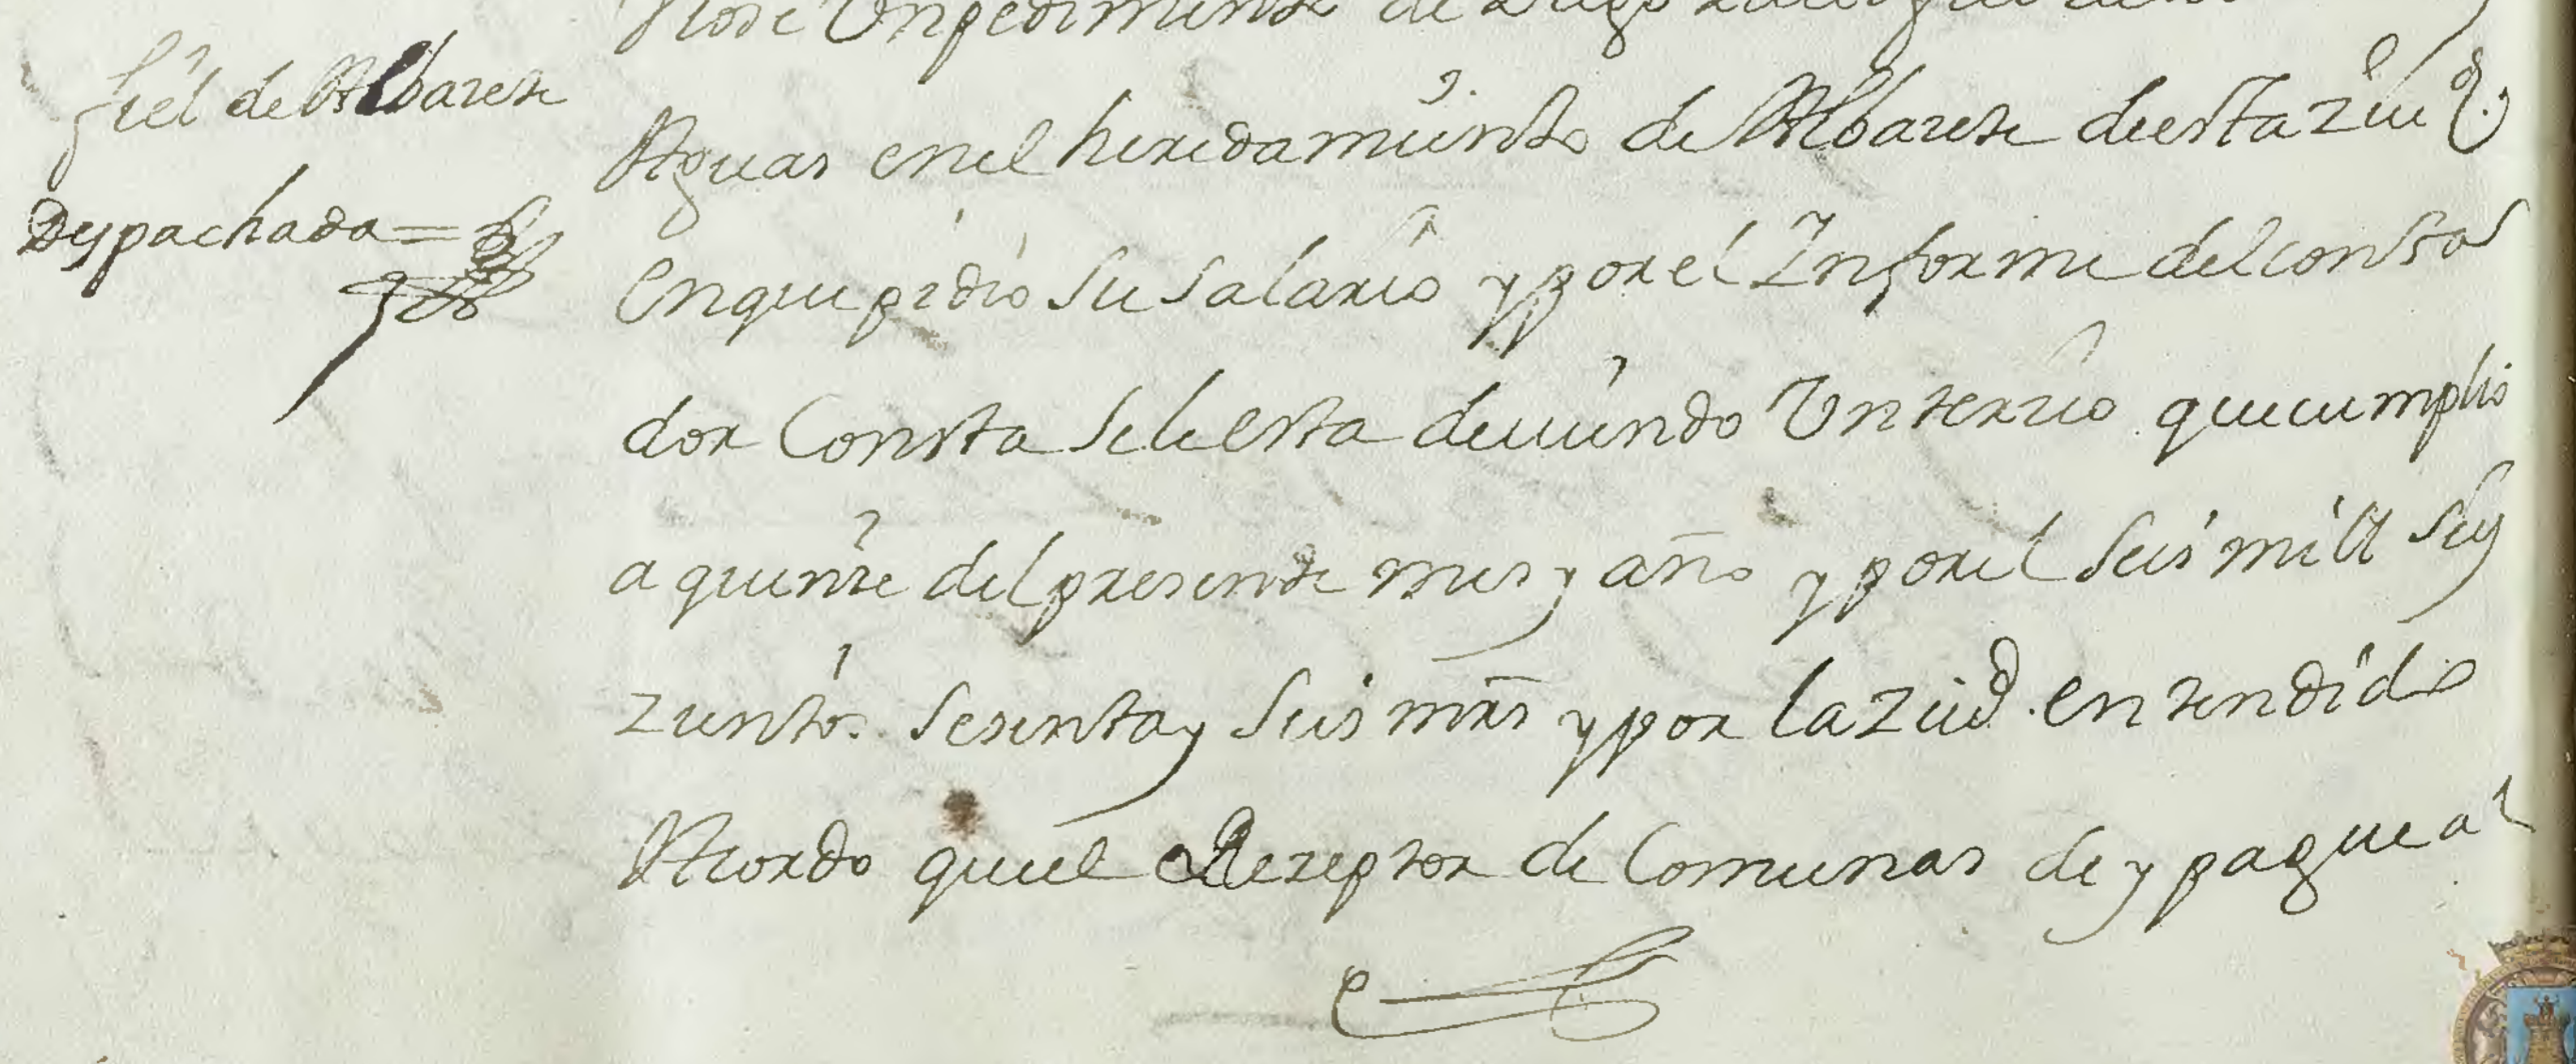 fiel de Albazete
Despachada=
Viose Un pedimento de Diego
Aguas en el heredamiento de Albazete de esta ziud
en que pidio su salario y por el Informe del Conta
dor Consta se le esta deuiendo Un terzio que cumplio
a quinze del presente mes y año y por el seis mill seis
zientos sesenta y seis mrs y por la ziud. entendido
Acordo que el Rezeptor de Comunas de y pague al